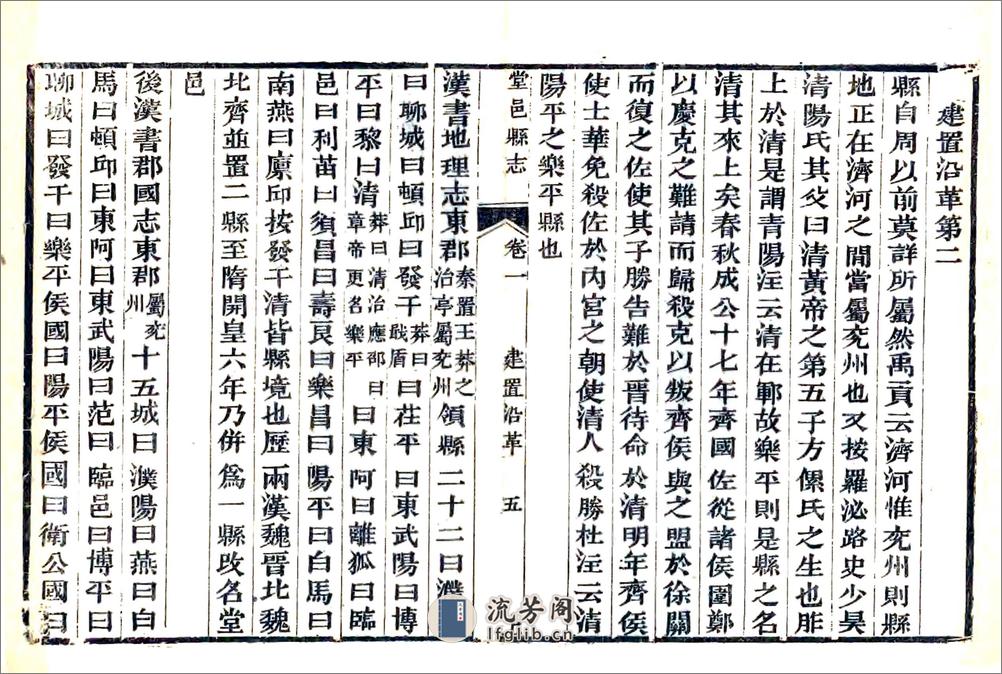 建置沿革第二
縣自周以前莫詳所屬然禹貢云濟河惟兖州則縣
地正在濟河之間當屬兖州也又按羅泌路史少昊
清陽氏其父曰清黃帝之第五子方傫氏之生也胙
上於清是謂青陽注云清在鄆故樂平則是縣之名
清其來上矣春秋成公十七年齊國佐從諸侯圍鄭
以慶克之難請而歸殺克以叛齊侯與之盟於徐關
而復之佐使其子勝告難於晉待命於清明年齊侯
使士華免殺佐於內宮之朝使清人殺勝杜注云清
陽平之樂平縣也
堂邑縣志 卷一 建置沿革 五
漢書地理志東郡秦置王莽之治亭屬兖州領縣二十二曰濮
曰聊城曰頓邱曰發干莽曰戢盾曰茌平曰東武陽曰博
平曰黎曰清莽曰清治應邵曰章帝更名樂平曰東阿曰離狐曰臨
邑曰利苗曰須昌曰壽良曰樂昌曰陽平曰白馬曰
南燕曰廩邱按發干清皆縣境也歷兩漢魏晉北魏
北齊並置二縣至隋開皇六年乃併爲一縣改名堂
邑
後漢書郡國志東郡屬兖州十五城曰濮陽曰燕曰白
馬曰頓邱曰東阿曰東武陽曰范曰臨邑曰博平曰
聊城曰發干曰樂平侯國曰陽平侯國曰衛公國曰
流芳阁
lfglib.cn